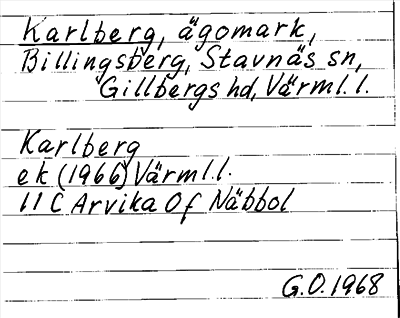 Karlberg, ägomark,
Billingsberg, Stavnäs sn,
Gillbergs hd, Värml.l.
Karlberg
ek (1966) Värml.l.
11 C Arvika Of Näbbol
G.O. 1968